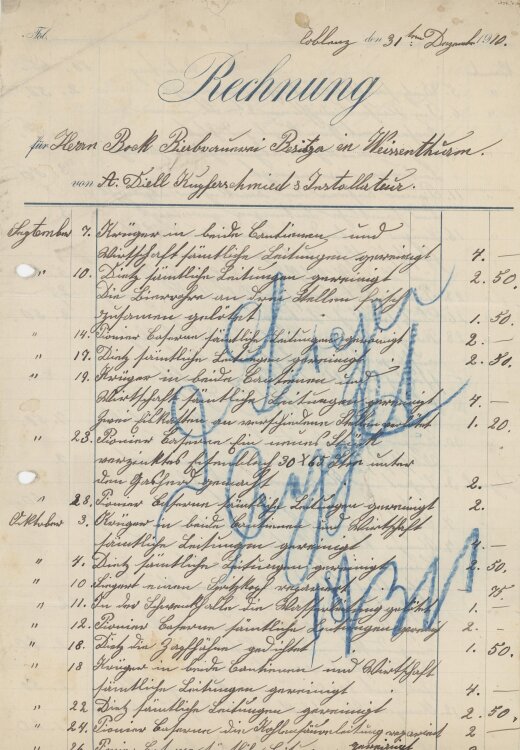 Fol.
Coblenz den 31ten Dezemb. 1910.
Rechnung
für Herrn Bock Bierbrauerei Besitzer in Weissenthurm.
von A. Diell Kupferschmied & Installateur.
September 7. Krüger in beide Cantienen und
Wirtschaft sämtliche Leitungen gereinigt 4. —
" 10. Dietz sämtliche Leitungen gereinigt 2. 50.
Die Bierrohre an drei Stellen frisch
zusamen gelötet 1. 50.
" 14. Pionier Caserne sämtliche Leitungen gereinigt 2. —
" 17. Dietz sämtliche Leitungen gereinigt 2. 50.
" 19. Krüger in beide Cantienen und
Wirtschaft sämtliche Leitungen gereinigt 4. —
zwei an verschiedene Stellen gelötet 1. 20.
" 23. Pionier Caserne Ein neues Stück
verzinktes 30 x 65 unter
den gemacht 2. —
" 28. Pionier Caserne sämtliche Leitungen gereinigt 2.
Oktober 3. Krüger in beide Cantienen und Wirtschaft
sämtliche Leitungen gereinigt 4. —
" 4. Dietz sämtliche Leitungen gereinigt 2. 50.
" 10. einen repariert 75
" 11. In der die gelötet 1. —
" 12. Pionier Caserne sämtliche Leitungen gereinigt 2. —
" 18. Dietz die Zapfhähne gedichtet 1. 50.
" 18 Krüger in beide Cantienen und Wirtschaft
sämtliche Leitungen gereinigt 4. —
" 22 Dietz sämtliche Leitungen gereinigt 2. 50.
" 24. Pionier Caserne die Kohlensäureleitung repariert 2 —